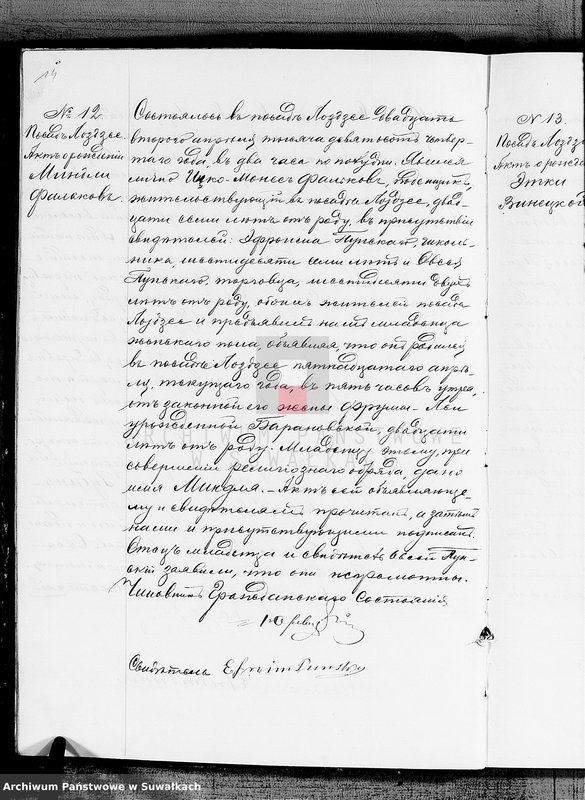 14
№ 12
Посадъ Лоздзее
Актъ о рожденіи
Минди
Фальковъ.
Состоялось въ посадѣ Лоздзее двадцать
второго апрѣля тысяча девятьсотъ четвер-
таго года, въ два часа по полудни. Явился
лично Ицко-Монесъ Фальковъ,
жительствующій въ посадѣ Лоздзее, двад-
цати семи лѣтъ отъ роду, въ присутствіи
свидѣтелей: Эфроима Пунскаго, школь-
ника, шестидесяти семи лѣтъ и Овсея
Пунскаго, торговца, шестидесяти двухъ
лѣтъ отъ роду, обоихъ жителей посада
Лоздзее и предъявилъ намъ младенца
женскаго пола, объявляя, что онъ родился
въ посадѣ Лоздзее пятнадцатаго апрѣ-
ля, текущаго года, въ пять часовъ утра,
отъ законной его жены Фрумы-Леи
урожденной Барановской, двадцати
лѣтъ отъ роду. Младенцу этому, при
совершеніи религіознаго обряда, дано
имя . Актъ сей объявляюще-
му и свидѣтелямъ прочитанъ, а затѣмъ
нами и присутствующими подписанъ.
Отецъ младенца и свидѣтель Овсей Пун-
скій заявили, что они неграмотны.
Чиновникъ Гражданскаго Состоянія
Свидѣтель Efroim Punsky
N 13
Посадъ Лоздз
Актъ о рожде
Этки
Винецкой
ARCHIWUM PAŃSTWOWE
W SUWAŁKACH
Archiwum Państwowe w Suwałkach